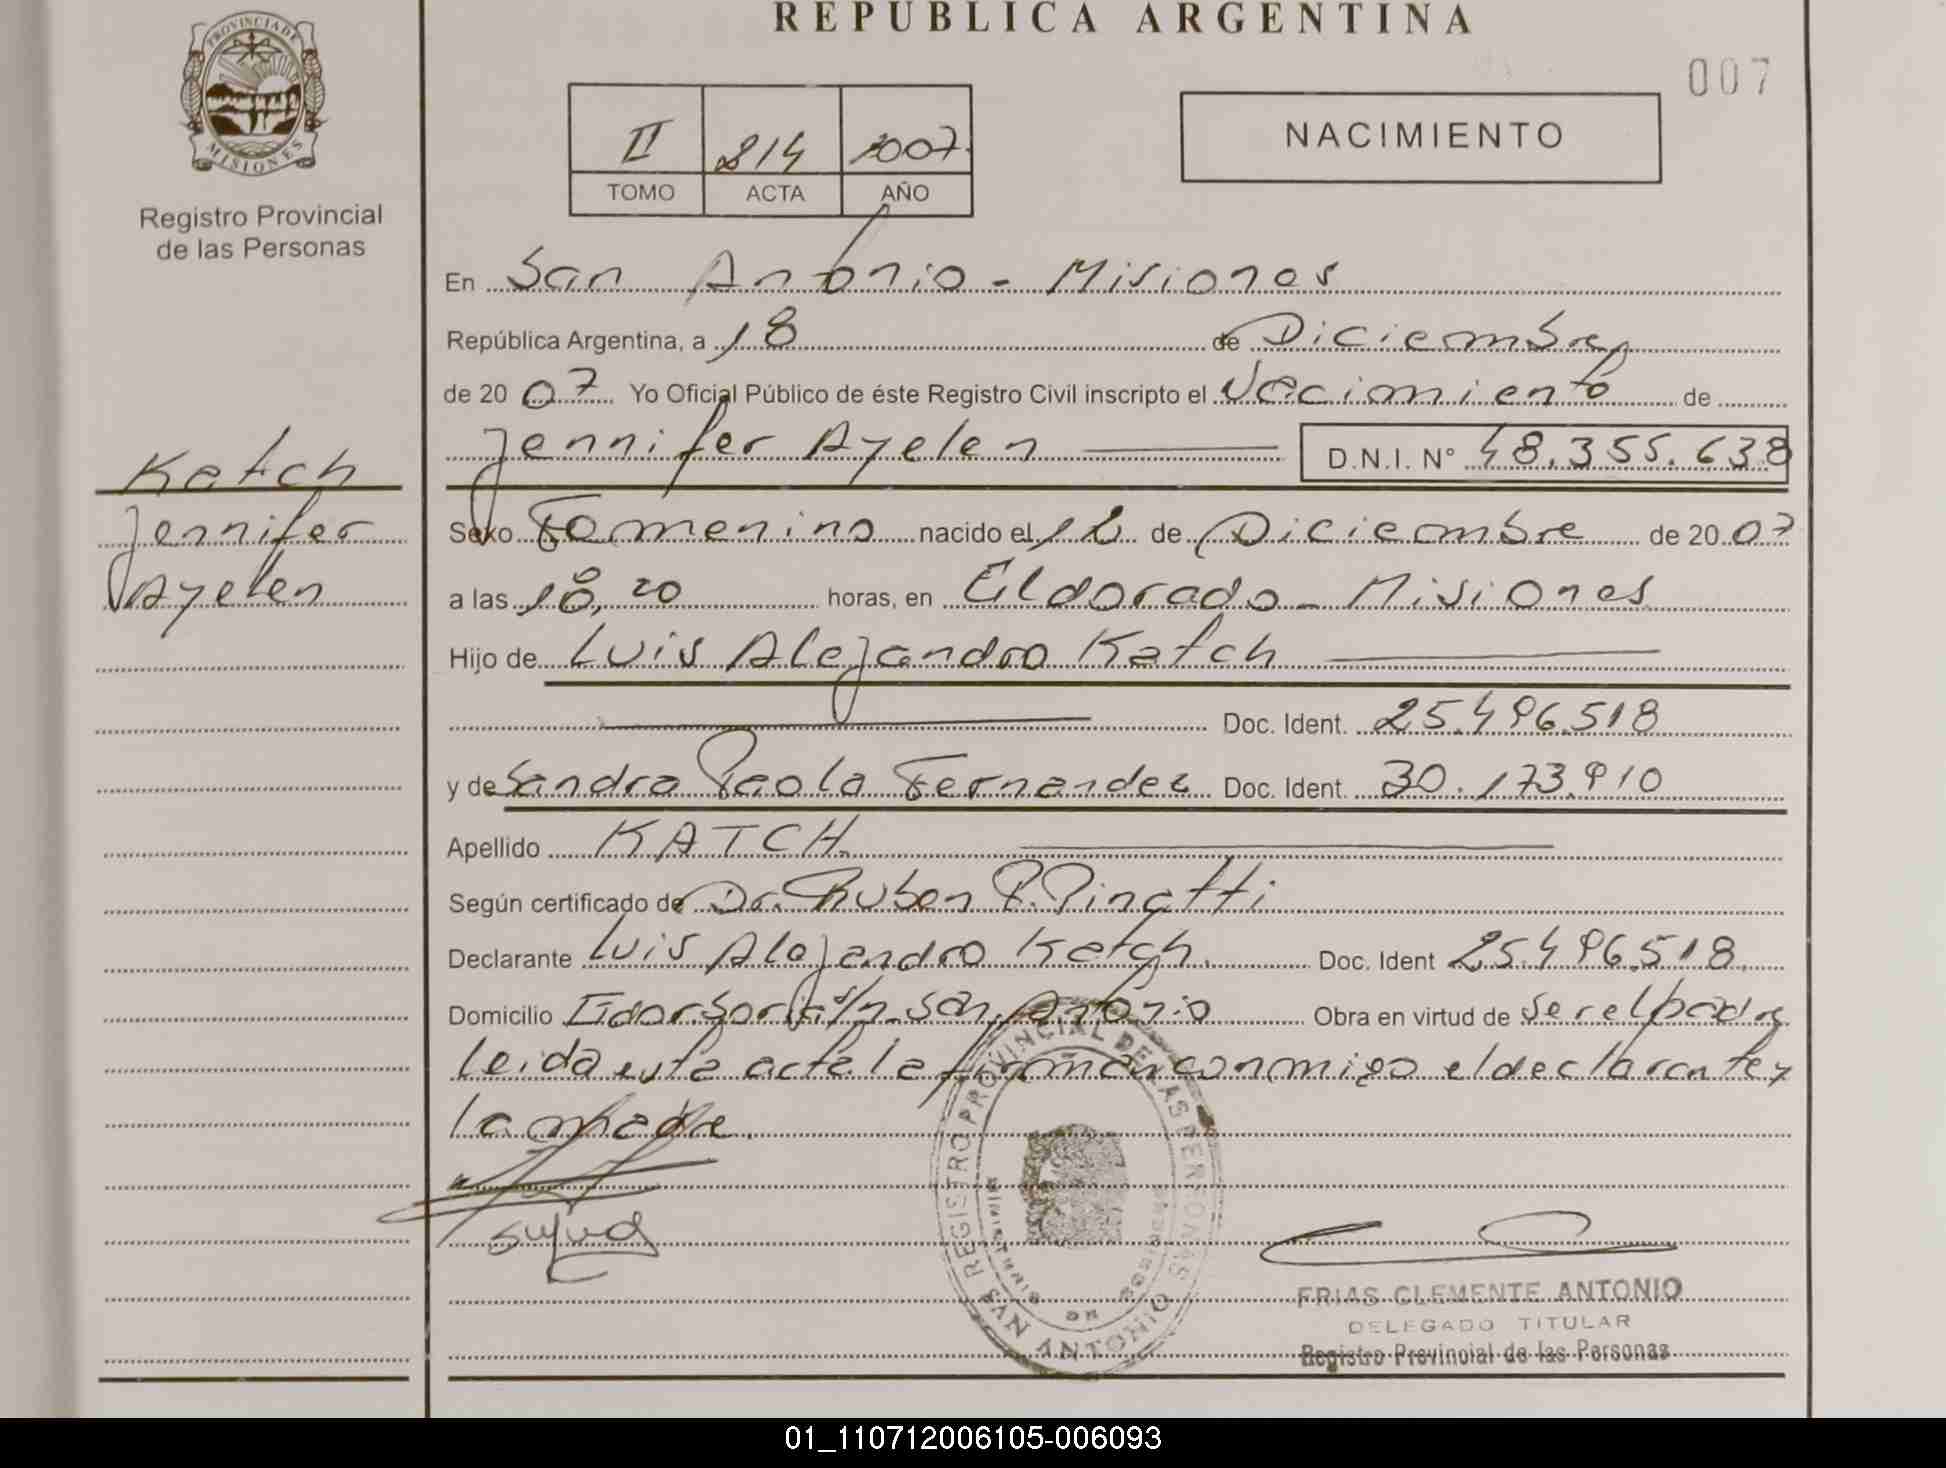 REPUBLICA ARGENTINA
007
PROVINCIA DE MISIONES
Registro Provincial
de las Personas
II 814 2007
TOMO ACTA AÑO
NACIMIENTO
En San Antonio - Misiones
República Argentina, a 18 de Diciembre
de 2007 Yo Oficial Público de éste Registro Civil inscripto el Nacimiento de
Jennifer Ayelen D.N.I. N° 48.355.638
Katch
Jennifer
Ayelen
Sexo Femenino nacido el 12 de Diciembre de 2007
a las 18,20 horas, en Eldorado - Misiones
Hijo de Luis Alejandro Katch
Doc. Ident. 25.496.518
y de Sandra Paola Fernandez Doc. Ident. 30.173.910
Apellido KATCH
Según certificado de Dr. Ruben P. Pinatti
Declarante Luis Alejandro Katch. Doc. Ident 25.496.518
Domicilio s/n San Antonio Obra en virtud de ser el padre
leida esta acta la firman conmigo el declarante y
la madre.
REGISTRO PROVINCIAL DE LAS PERSONAS
SAN ANTONIO
FRIAS CLEMENTE ANTONIO
DELEGADO TITULAR
Registro Provincial de las Personas
01_110712006105-006093